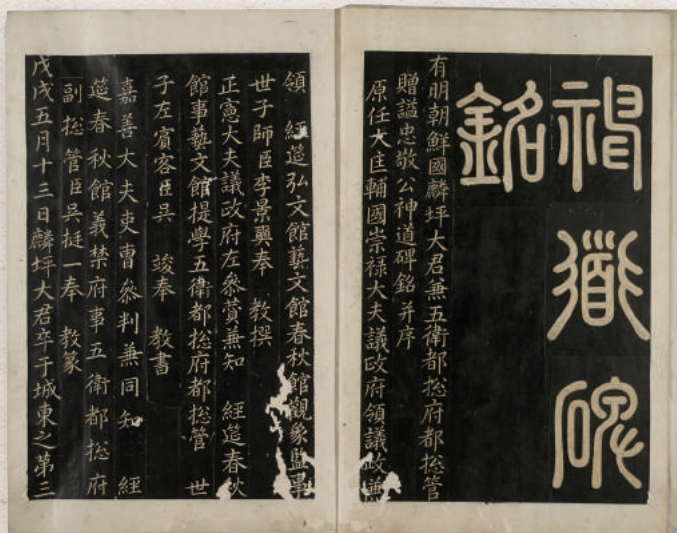 神道碑
銘
有明朝鮮國麟坪大君兼五衛都摠府都摠管
贈謚忠敬公神道碑銘并序
原任大匡輔國崇祿大夫議政府領議政兼
領 經筵弘文館藝文館春秋館觀象監事
世子師臣李景奭奉 教撰
正憲大夫議政府左叅贊兼知 經筵春秋
館事藝文館提學五衛都摠府都摠管 世
子左賓客臣吳竣奉 教書
嘉善大夫吏曹叅判兼同知 經
筵春秋館義禁府事五衛都摠府
副摠管臣吳挺一奉 教篆
戊戌五月十三日麟坪大君卒于城東之第三